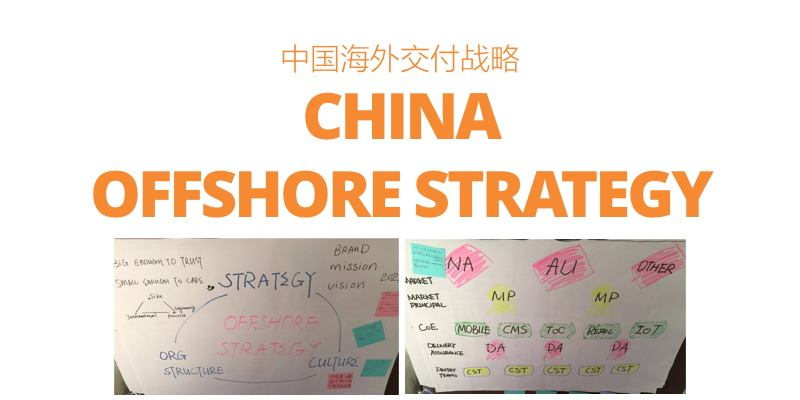 中国海外交付战略
CHINA
OFFSHORE STRATEGY
BIG ENOUGH TO TRUST
SMALL ENOUGH TO CARE
Size
International
STRATEGY
BRAND
mission
vision
OFFSHORE
STRATEGY
ORG
STRUCTURE
CULTURE
NA
AU
OTHER
MARKET
MARKET
PRINCIPAL
MP
MP
CoE
MOBILE
CMS
TOC
RETAIL
IoT
DELIVERY
ASSURANCE
DA
DA
DA
TEAMS
CST
CST
CST
CST
CST